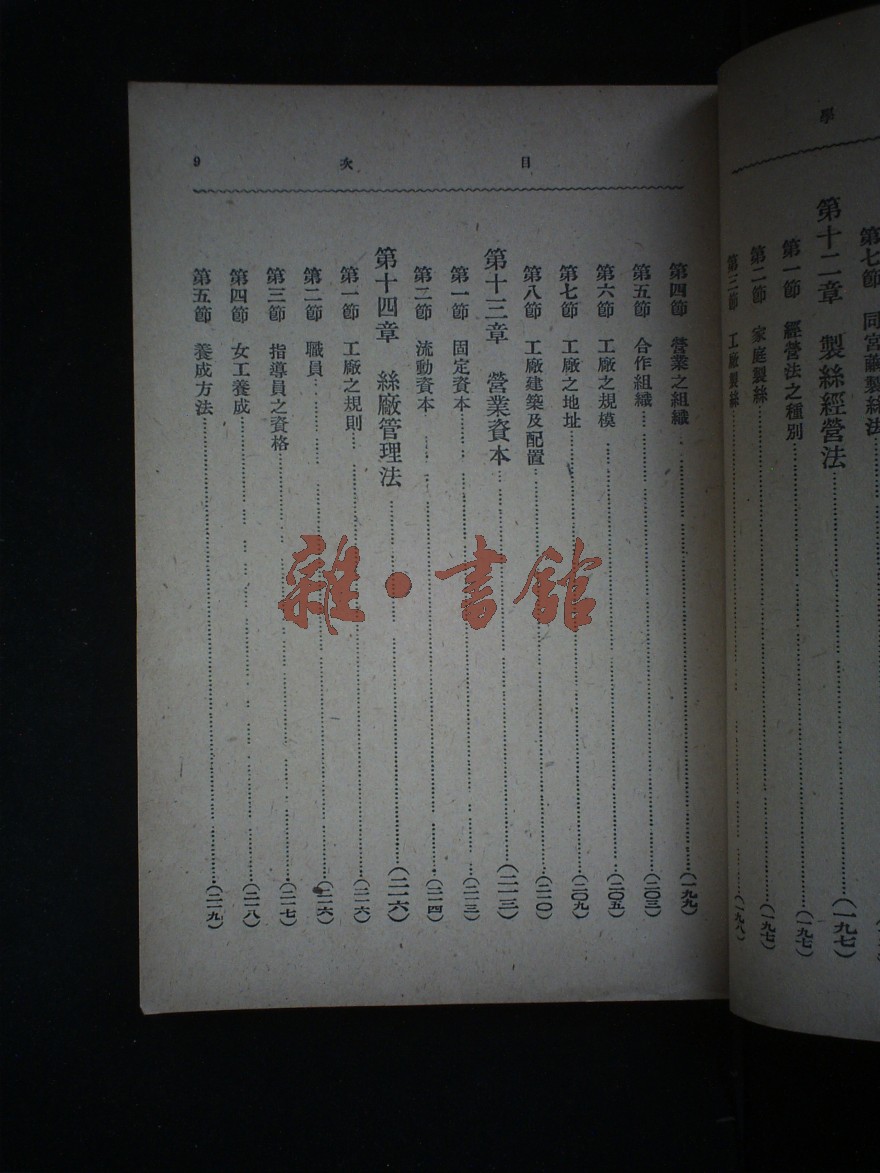 學
第七節 同宮繭製絲法
第十二章 製絲經營法……(一九七)
第一節 經營法之種別……(一九七)
第二節 家庭製絲……(一九七)
第三節 工廠製絲……(一九八)
目 次 9
第四節 營業之組織……(一九九)
第五節 合作組織……(二〇三)
第六節 工廠之規模……(二〇五)
第七節 工廠之地址……(二〇九)
第八節 工廠建築及配置……(二一〇)
第十三章 營業資本……(二一三)
第一節 固定資本……(二一三)
第二節 流動資本……(二一四)
第十四章 絲廠管理法……(二一六)
第一節 工廠之規則……(二一六)
第二節 職員……(二一六)
第三節 指導員之資格……(二一七)
第四節 女工養成……(二一八)
第五節 養成方法……(二一九)
雜·書館